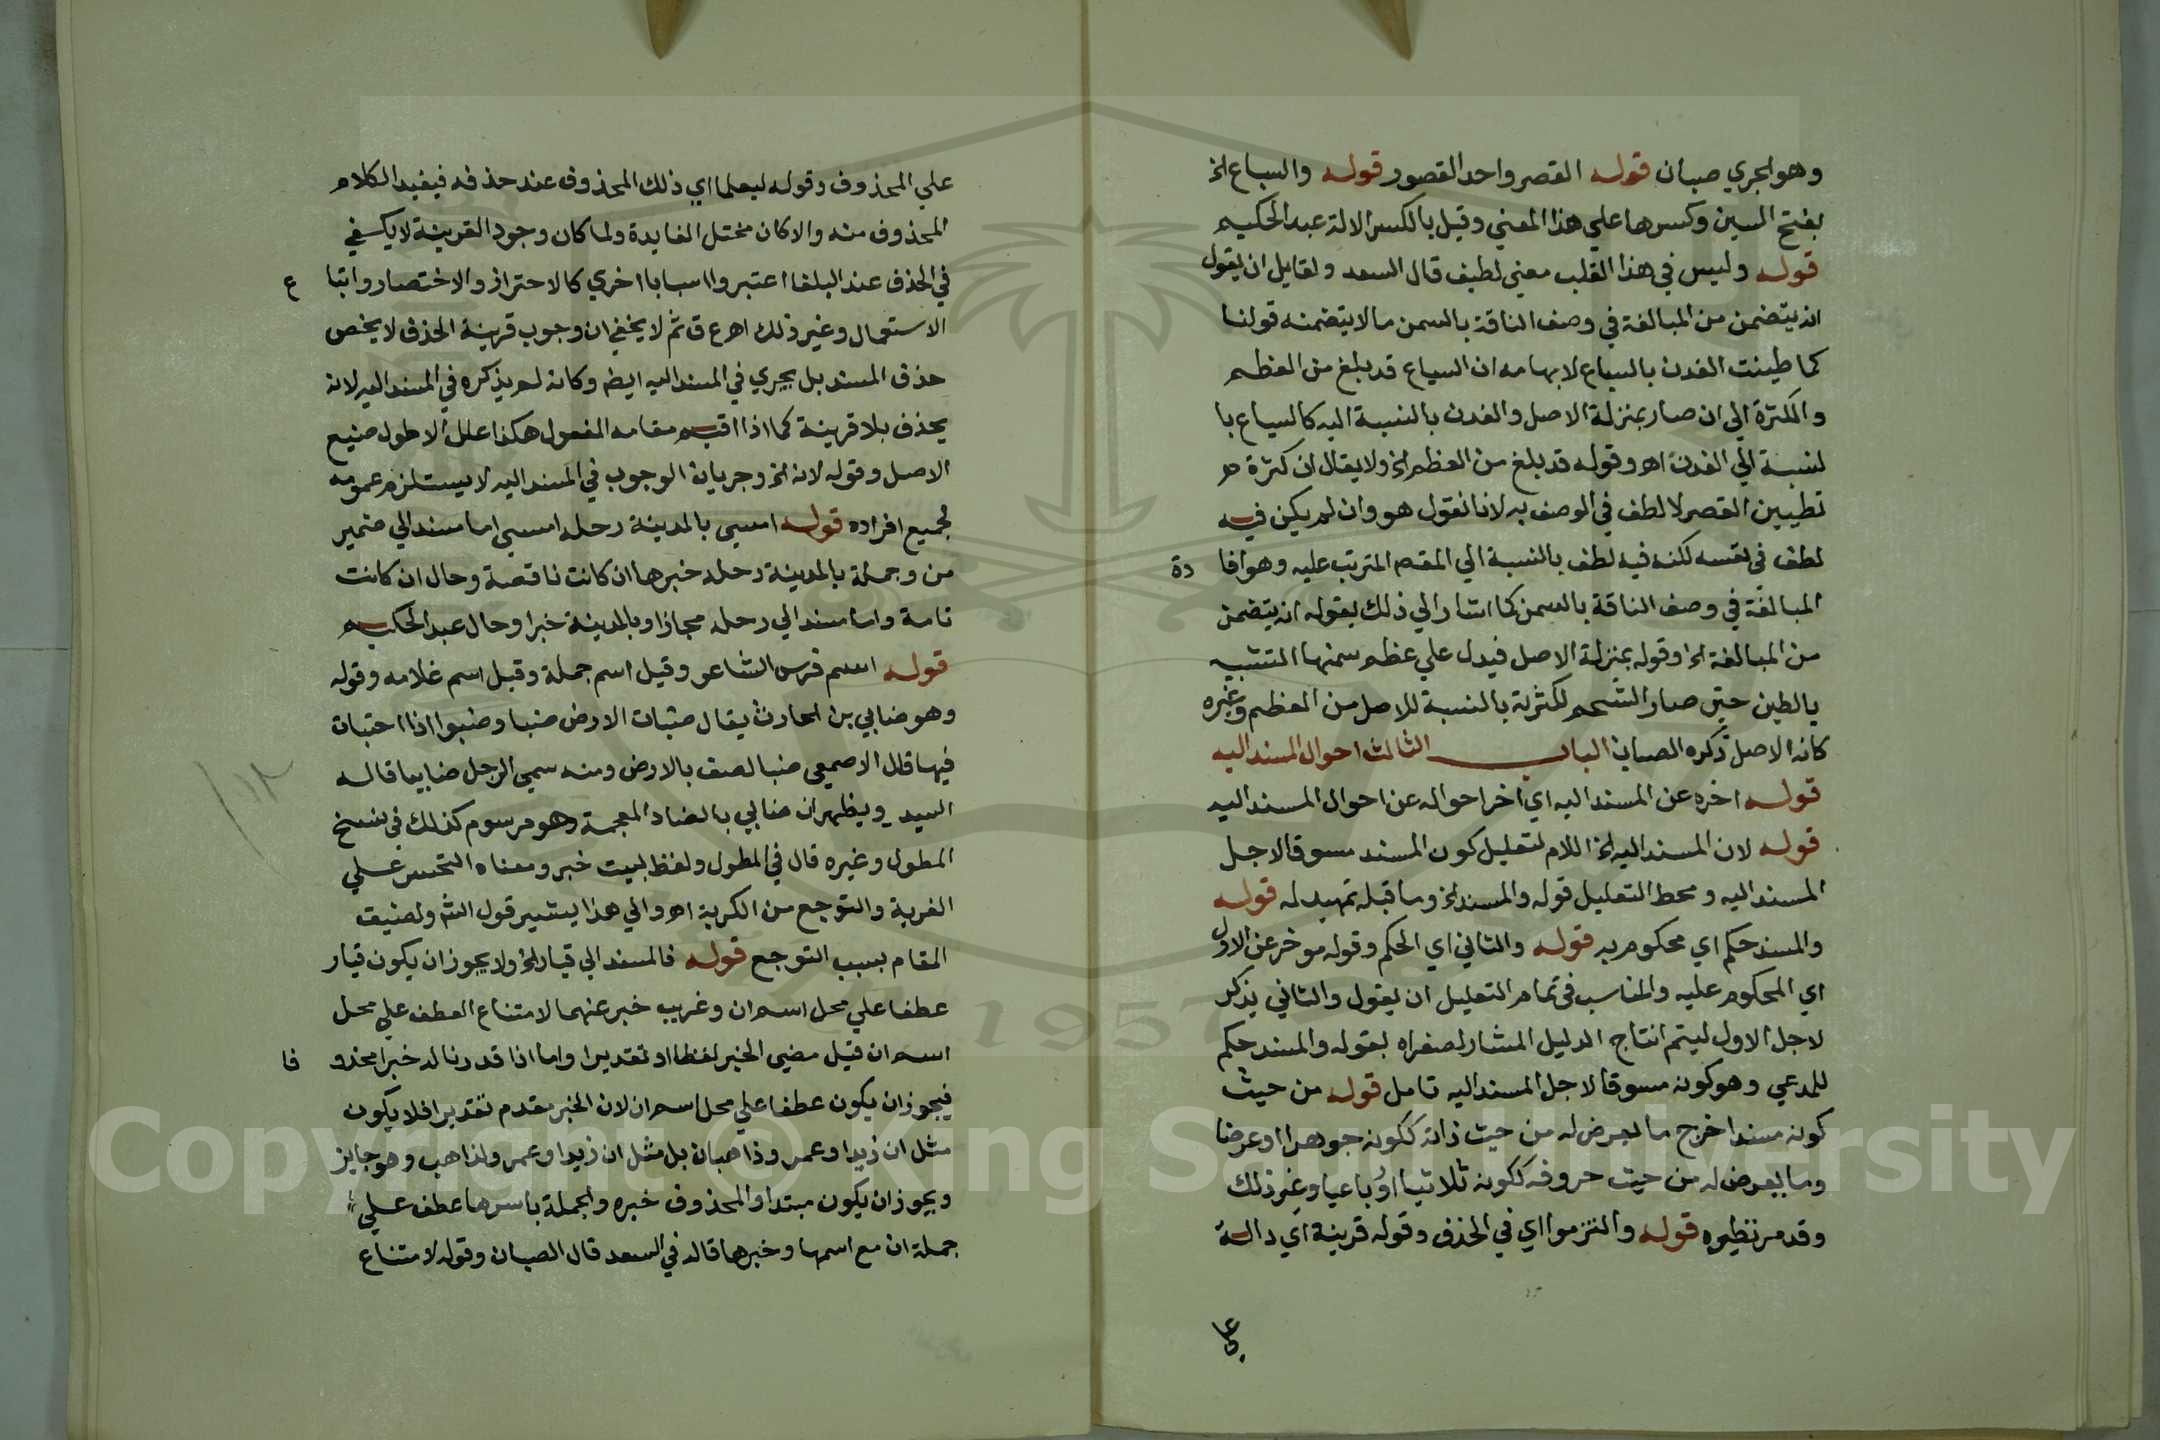 وهو الجري صبان قوله القصر واحد القصور قوله والسياع الخ
بفتح السين وكسرها علي هذا المعني وقيل بالكسر الالة عبد الحكيم
قوله وليس في هذا القلب معني لطيف قال السعد ولقايل ان يقول
انه يتضمن من المبالغة في وصف الناقة بالسمن ما لا يتضمنه قولنا
كما طينت الفدن بالسياع لابهامه ان السياع قد بلغ من العظم
والكثرة الي ان صار بمنزلة الاصل والفدن بالنسبة اليه كالسياع با
لنسبة الي الفدن اهـ وقوله قد بلغ من العظم الخ ولا يقال ان كثرة
تطيين القصر لا لطف في الوصف به لانا نقول هو وان لم يكن فيه
لطف في نفسه لكنه فيه لطف بالنسبة الي المقصم المترتب عليه وهو افا دة
المبالغة في وصف الناقة بالسمن كما اشار الي ذلك بقوله انه يتضمن
من المبالغة الخ وقوله بمنزلة الاصل فيدل علي عظم سمنها المشبه
بالطين حتي صار الشحم لكثرته بالنسبة للاصل من العظم وغيره
كانه الاصل ذكره الصبان الباب الثالث احوال المسند اليه
قوله اخره عن المسند اليه اي اخر احواله عن احوال المسند اليه
قوله لان المسند اليه الخ اللام لتعليل كون المسند مسوقا لاجل
المسند اليه ومحط التعليل قوله والمسند الخ وما قبله تمهيد له قوله
والمسند حكم اي محكوم به قوله والثاني اي الحكم وقوله موخر عن الاول
اي المحكوم عليه والمناسب في تمام التعليل ان يقول والثاني يذكر
لاجل الاول ليتم انتاج الدليل المشار لصغراه بقوله والمسند حكم
للمدعي وهو كونه مسوقا لاجل المسند اليه تامل قوله من حيث
كونه مسندا خرج ما يعرض له من حيث ذاته ككونه جوهرا او عرضا
وما يعرض له من حيث حروفه ككونه ثلاثيا او رباعيا وغير ذلك
وقد مر نظيره قوله والتزموا اي في الحذف وقوله قرينة اي دالة
علي
علي المحذوف وقوله ليعلما اي ذلك المحذوف عند حذفه فيفيد الكلام
المحذوف منه والا كان مختل الفايدة ولما كان وجود القرينة لا يكفي
في الحذف عند البلغا اعتبروا اسبابا اخري كالاحتراز والاختصار واتبا ع
الاستعمال وغير ذلك اهـ ع ق ثم لا يخفي ان وجوب قرينة الحذف لا يخص
حذف المسند بل يجري في المسند اليه ايضا وكانه لم يذكره في المسند اليه لانه
يحذف بلا قرينة كما اذا اقيم مقامه المفعول هكذا علل الاطول صنيع
الاصل وقوله لانه الخ وجريان الوجوب في المسند اليه لا يستلزم عمومه
لجميع افراده قوله امسي بالمدينة رحله امسي اما مسند الي ضمير
من وجملة بالمدينة رحله خبرها ان كانت ناقصة وحال ان كانت
تامة واما مسند الي رحله مجازا وبالمدينة خبرا وحال عبد الحكيم
قوله اسم فرس الشاعر وقيل اسم جملة وقيل اسم غلامه وقوله
وهو ضابي بن الحارث يقال ضبات الارض ضبا وضبوا اذا اختبات
فيها قال الاصمعي ضبا لصق بالارض ومنه سمي الرجل ضابيا قاله
السيد ويظهر ان ضابي بالضاد المعجمة وهو مرسوم كذلك في نسخ
المطول وغيره قال في المطول ولفظ البيت خبر ومعناه التحسر علي
الغربة والتوجع من الكربة اهـ والي هذا يشير قول الش ولضيق
المقام بسبب التوجع قوله فالمسند الي قيار الخ ولا يجوز ان يكون قيار
عطفا علي محل اسم ان وغريب خبر عنهما لامتناع العطف علي محل
اسم ان قبل مضي الخبر لفظا او تقديرا واما اذا قدرنا له خبرا محذو فا
فيجوز ان يكون عطفا علي محل اسم ان لان الخبر مقدم تقديرا فلا يكون
مثل ان زيدا وعمرو ذاهبان بل مثل ان زيدا وعمرو لذاهب وهو جايز
ويجوز ان يكون مبتدا والمحذوف خبره والجملة باسرها عطف علي
جملة ان مع اسمها وخبرها قاله في السعد قال الصبان وقوله لامتناع
Copyright © King Saud University
1957